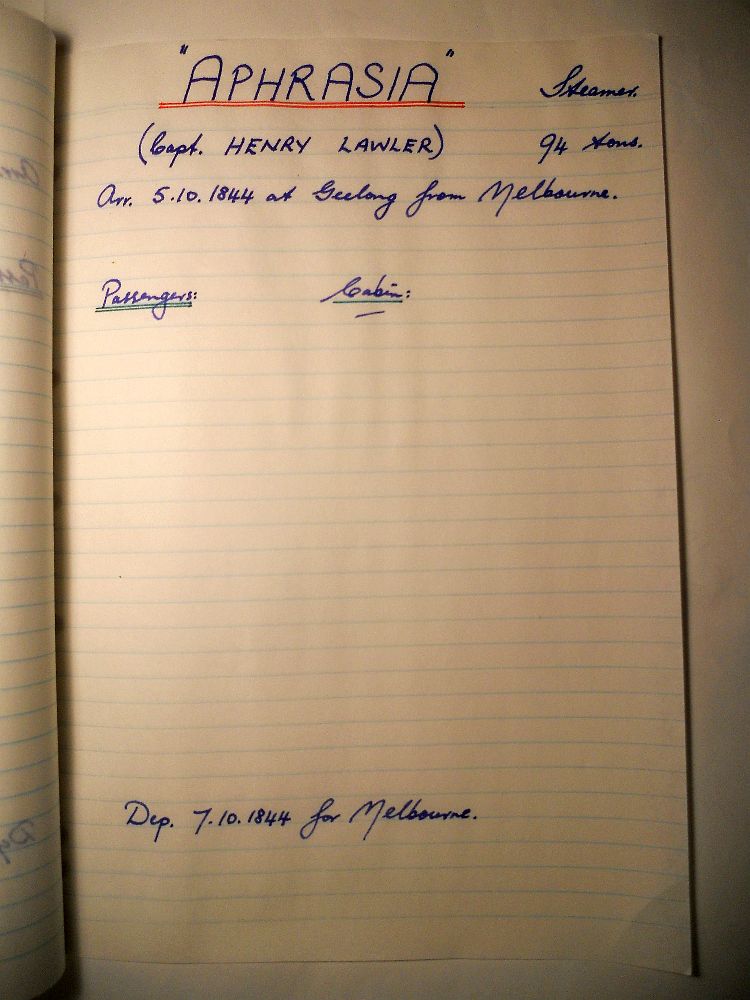 "APHRASIA" Steamer.
(Capt. HENRY LAWLER) 94 tons.
Arr. 5.10.1844 at Geelong from Melbourne.
Passengers: Cabin:
—
Dep. 7.10.1844 for Melbourne.